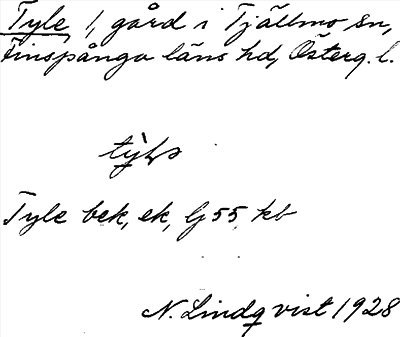 Tyle 1, gård i Tjällmo sn,
Finspånga läns hd, Österg. l.
Tyle bek, ek, lj 55, kb
N. Lindqvist 1928